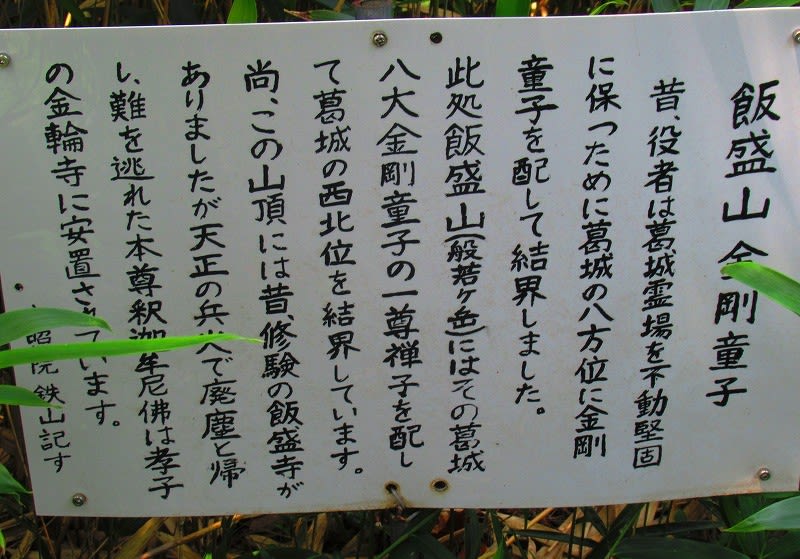 飯盛山 金剛童子
昔、役者は葛城霊場を不動堅固
に保つために葛城の八方位に金剛
童子を配して結界しました。
此処飯盛山(般若ヶ岳)にはその葛城
八大金剛童子の一尊禅子を配し
て葛城の西北位を結界しています。
尚、この山頂には昔、修験の飯盛寺が
ありましたが天正の兵火で廃塵と帰
し、難を逃れた本尊釈迦牟尼佛は孝子
の金輪寺に安置されています。
照院 鉄山記す